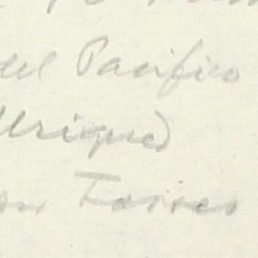 del Pacifico
Urique)
Torres